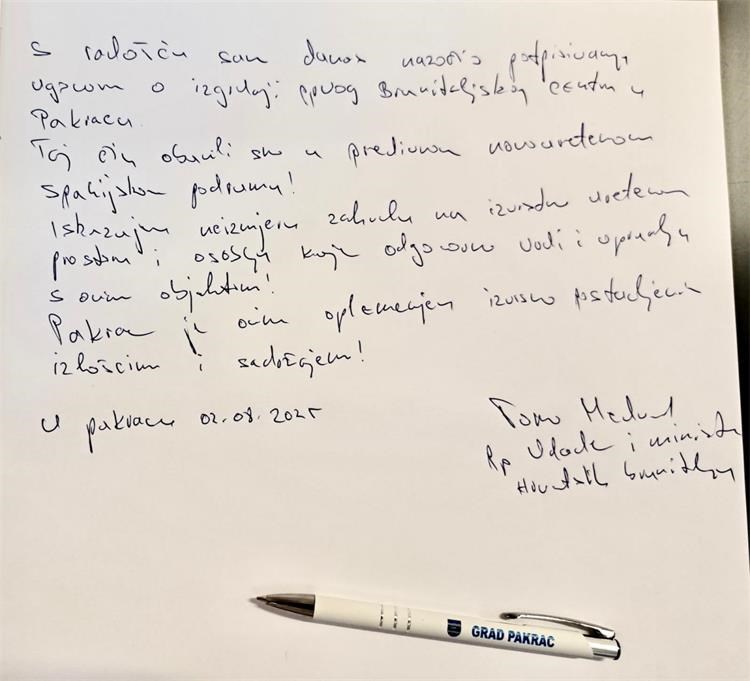 S radošću sam danas nazočio potpisivanju
ugovora o izgradnji prvog Braniteljskog centra u
Pakracu.
Taj čin obavili smo u predivnom novouređenom
Spahijskom podrumu!
Iskazujem neizmjernu zahvalu na izvrsno uređenom
prostoru i osoblju koje odgovorno vodi i upravlja
s ovim objektom!
Pakrac je ovim oplemenjen izvrsno postavljenim
izložcima i sadržajem!
U Pakracu 02.08.2025
Tomo Medved
Pp Vlade i ministar
Hrvatskih branitelja
GRAD PAKRAC